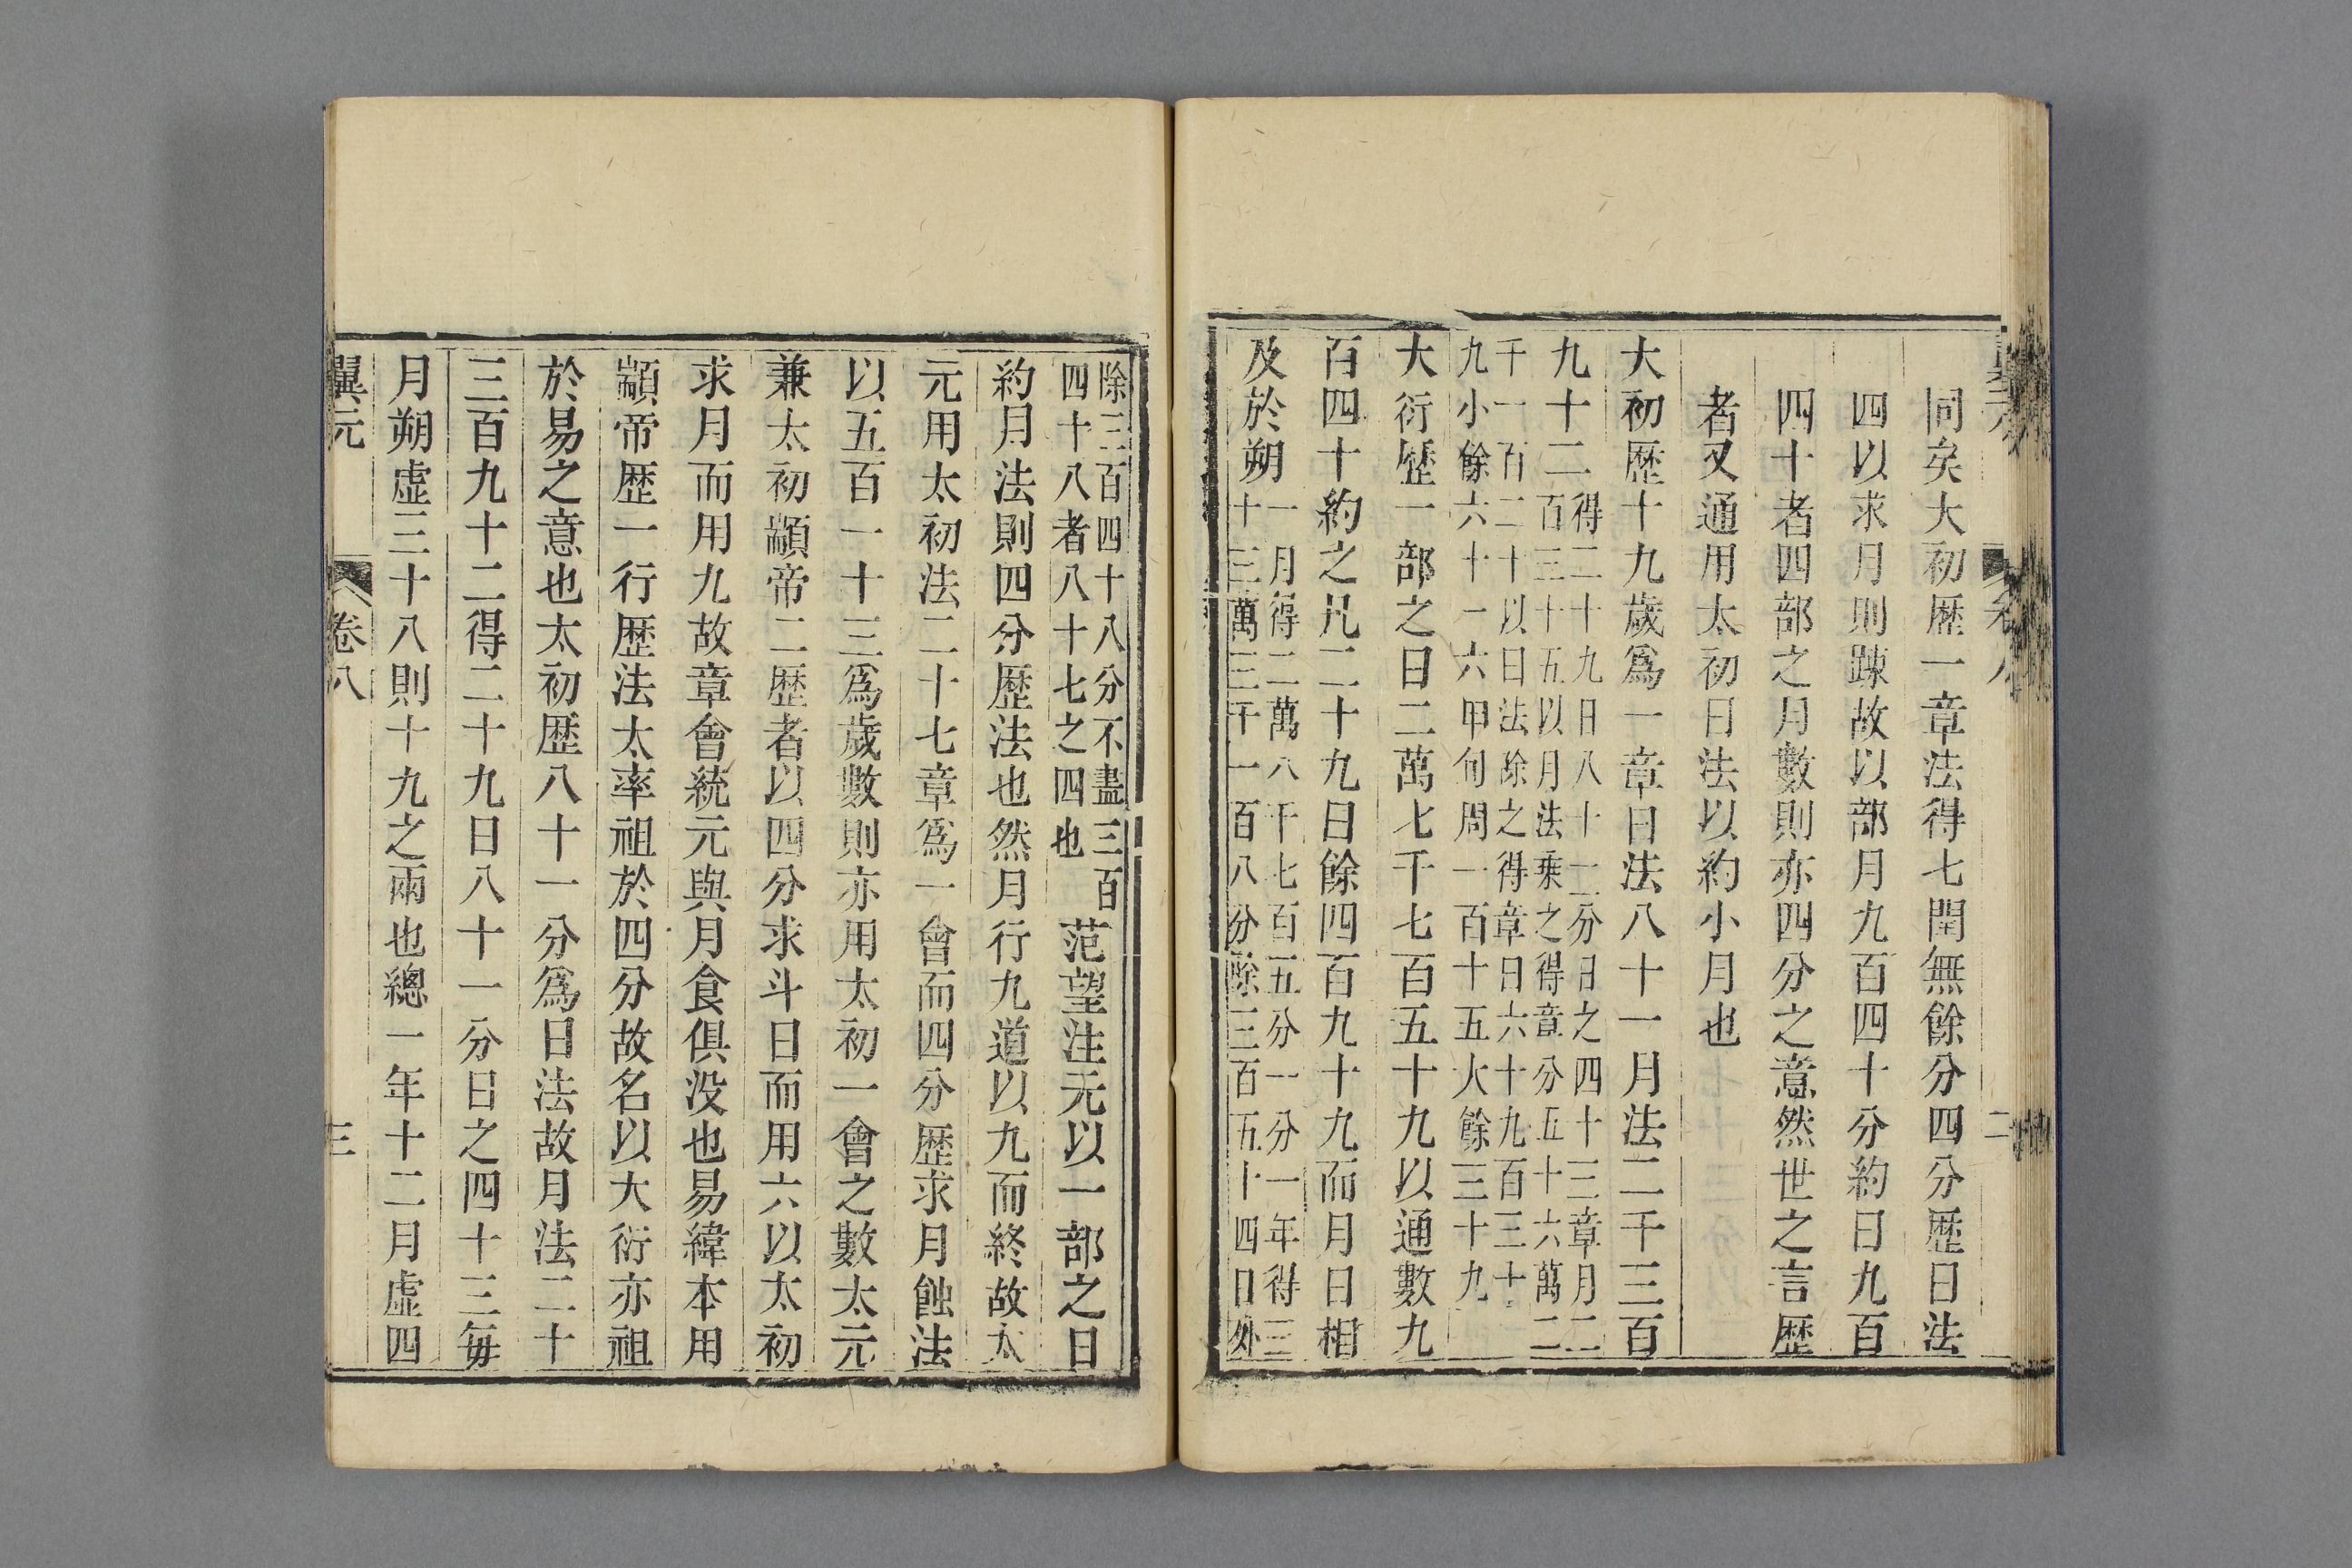 同矣大初歷一章法得七閏無餘分四分歷日法
四以求月則踈故以部月九百四十分約日九百
四十者四部之月數則亦四分之意然世之言歷
者又通用太初日法以約小月也
大初歷十九歲爲一章日法八十一月法二千三百
九十二
得二十九日八十一分日之四十三章月二
百三十五以月法乘之得章分五十六萬二
千一百二十以日法除之得章日六千九百三十
九小餘六十一六甲旬周一百十五大餘三十九
大衍歷一部之日二萬七千七百五十九以通數九
百四十約之凡二十九日餘四百九十九而月日相
及於朔
一月得二萬八千七百五分一分一年得三
十三萬三千一百八分除三百五十四日外
除三百四十八分不盡三百
四十八者八十七之四也
范望注元以一部之日
約月法則四分歷法也然月行九道以九而終故太
元用太初法二十七章爲一會而四分歷求月蝕法
以五百一十三爲歲數則亦用太初一會之數太元
兼太初顓帝二歷者以四分求斗日而用六以太初
求月而用九故章會統元與月食俱没也易緯本用
顓帝歷一行歷法太率祖於四分故名以大衍亦祖
於易之意也太初歷八十一分爲日法故月法二十
三百九十二得二十九日八十一分日之四十三每
月朔虛三十八則十九之兩也總一年十二月虛四
翼元
卷八
三